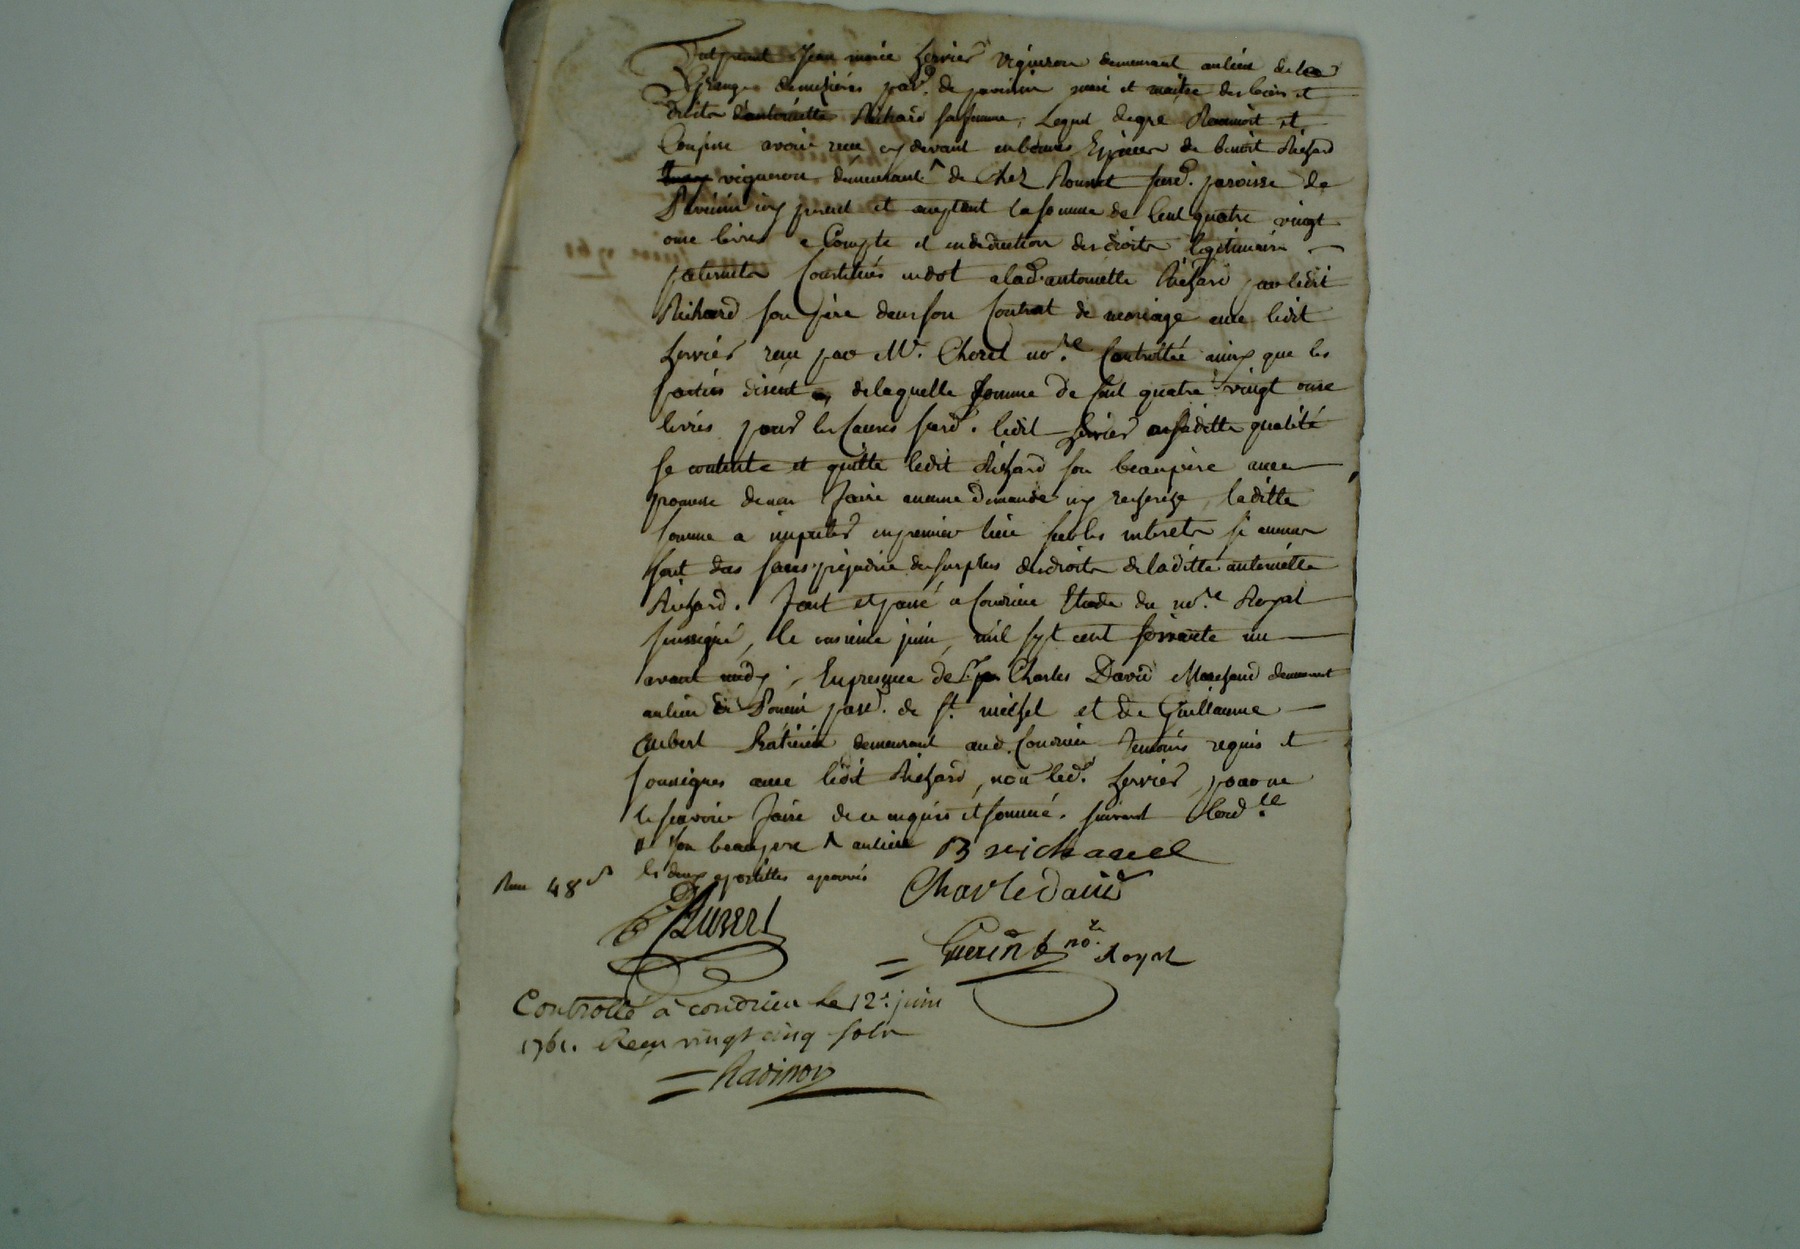 Fut present Jean marie hervier vigneron demeurant au lieu de la
Grange demezieres par.e de pavisin mari et maitre des biens et
droits d'antoinette Richard sa femme, Lequel de gré Reconnoit et
Confesse avoir recu cy devant en bonnes Espèces de benoit Richard
vigneron demeurant ^ de Chez Rounet sus.d paroisse de
Pavisin icy present et acceptant la somme de Cent quatre vingt
onze livres a Compte et en deduction des droits legitimaires
paternels Constitués en dot a lad. antoinette Richard par ledit
Richard son père dans son Contrat de mariage avec ledit
hervier recu par M.e Chorel no.re Controllée ainsy que les
parties disent de laquelle somme de Cent quatre vingt onze
livres pour les Causes sus.d ledit hervier en saditte qualité
se contente et quitte ledit Richard son beaupère avec
promesse de n'en faire aucune demande ny recherche, laditte
somme a imputer en premier lieu sur les interets si aucuns
sont dus sans prejudice du surplus des droits de laditte antoinette
Richard. Fait et passé a Condrieu Etude du no.re Royal
soussigné, le onzieme juin, mil sept cent soixante un
avant midy, En presence de S.r Charles David Marchand demeurant
au lieu de par.e de St. michel et de Guillaume
Aubert demeurant aud. Condrieu temoins requis et
soussignes avec ledit Richard, non led. hervier pour ne
le scavoir faire de ce enquis et sommé. suivant l'ord.ce
# son beaupere ^ au lieu B richard
les deux apostilles aprouvés
Charle david
Recu 48 s
G Aubert
Guerin no.re Royal
Controllé à condrieu le 12.e juin
1761. Recu vingt cinq sols